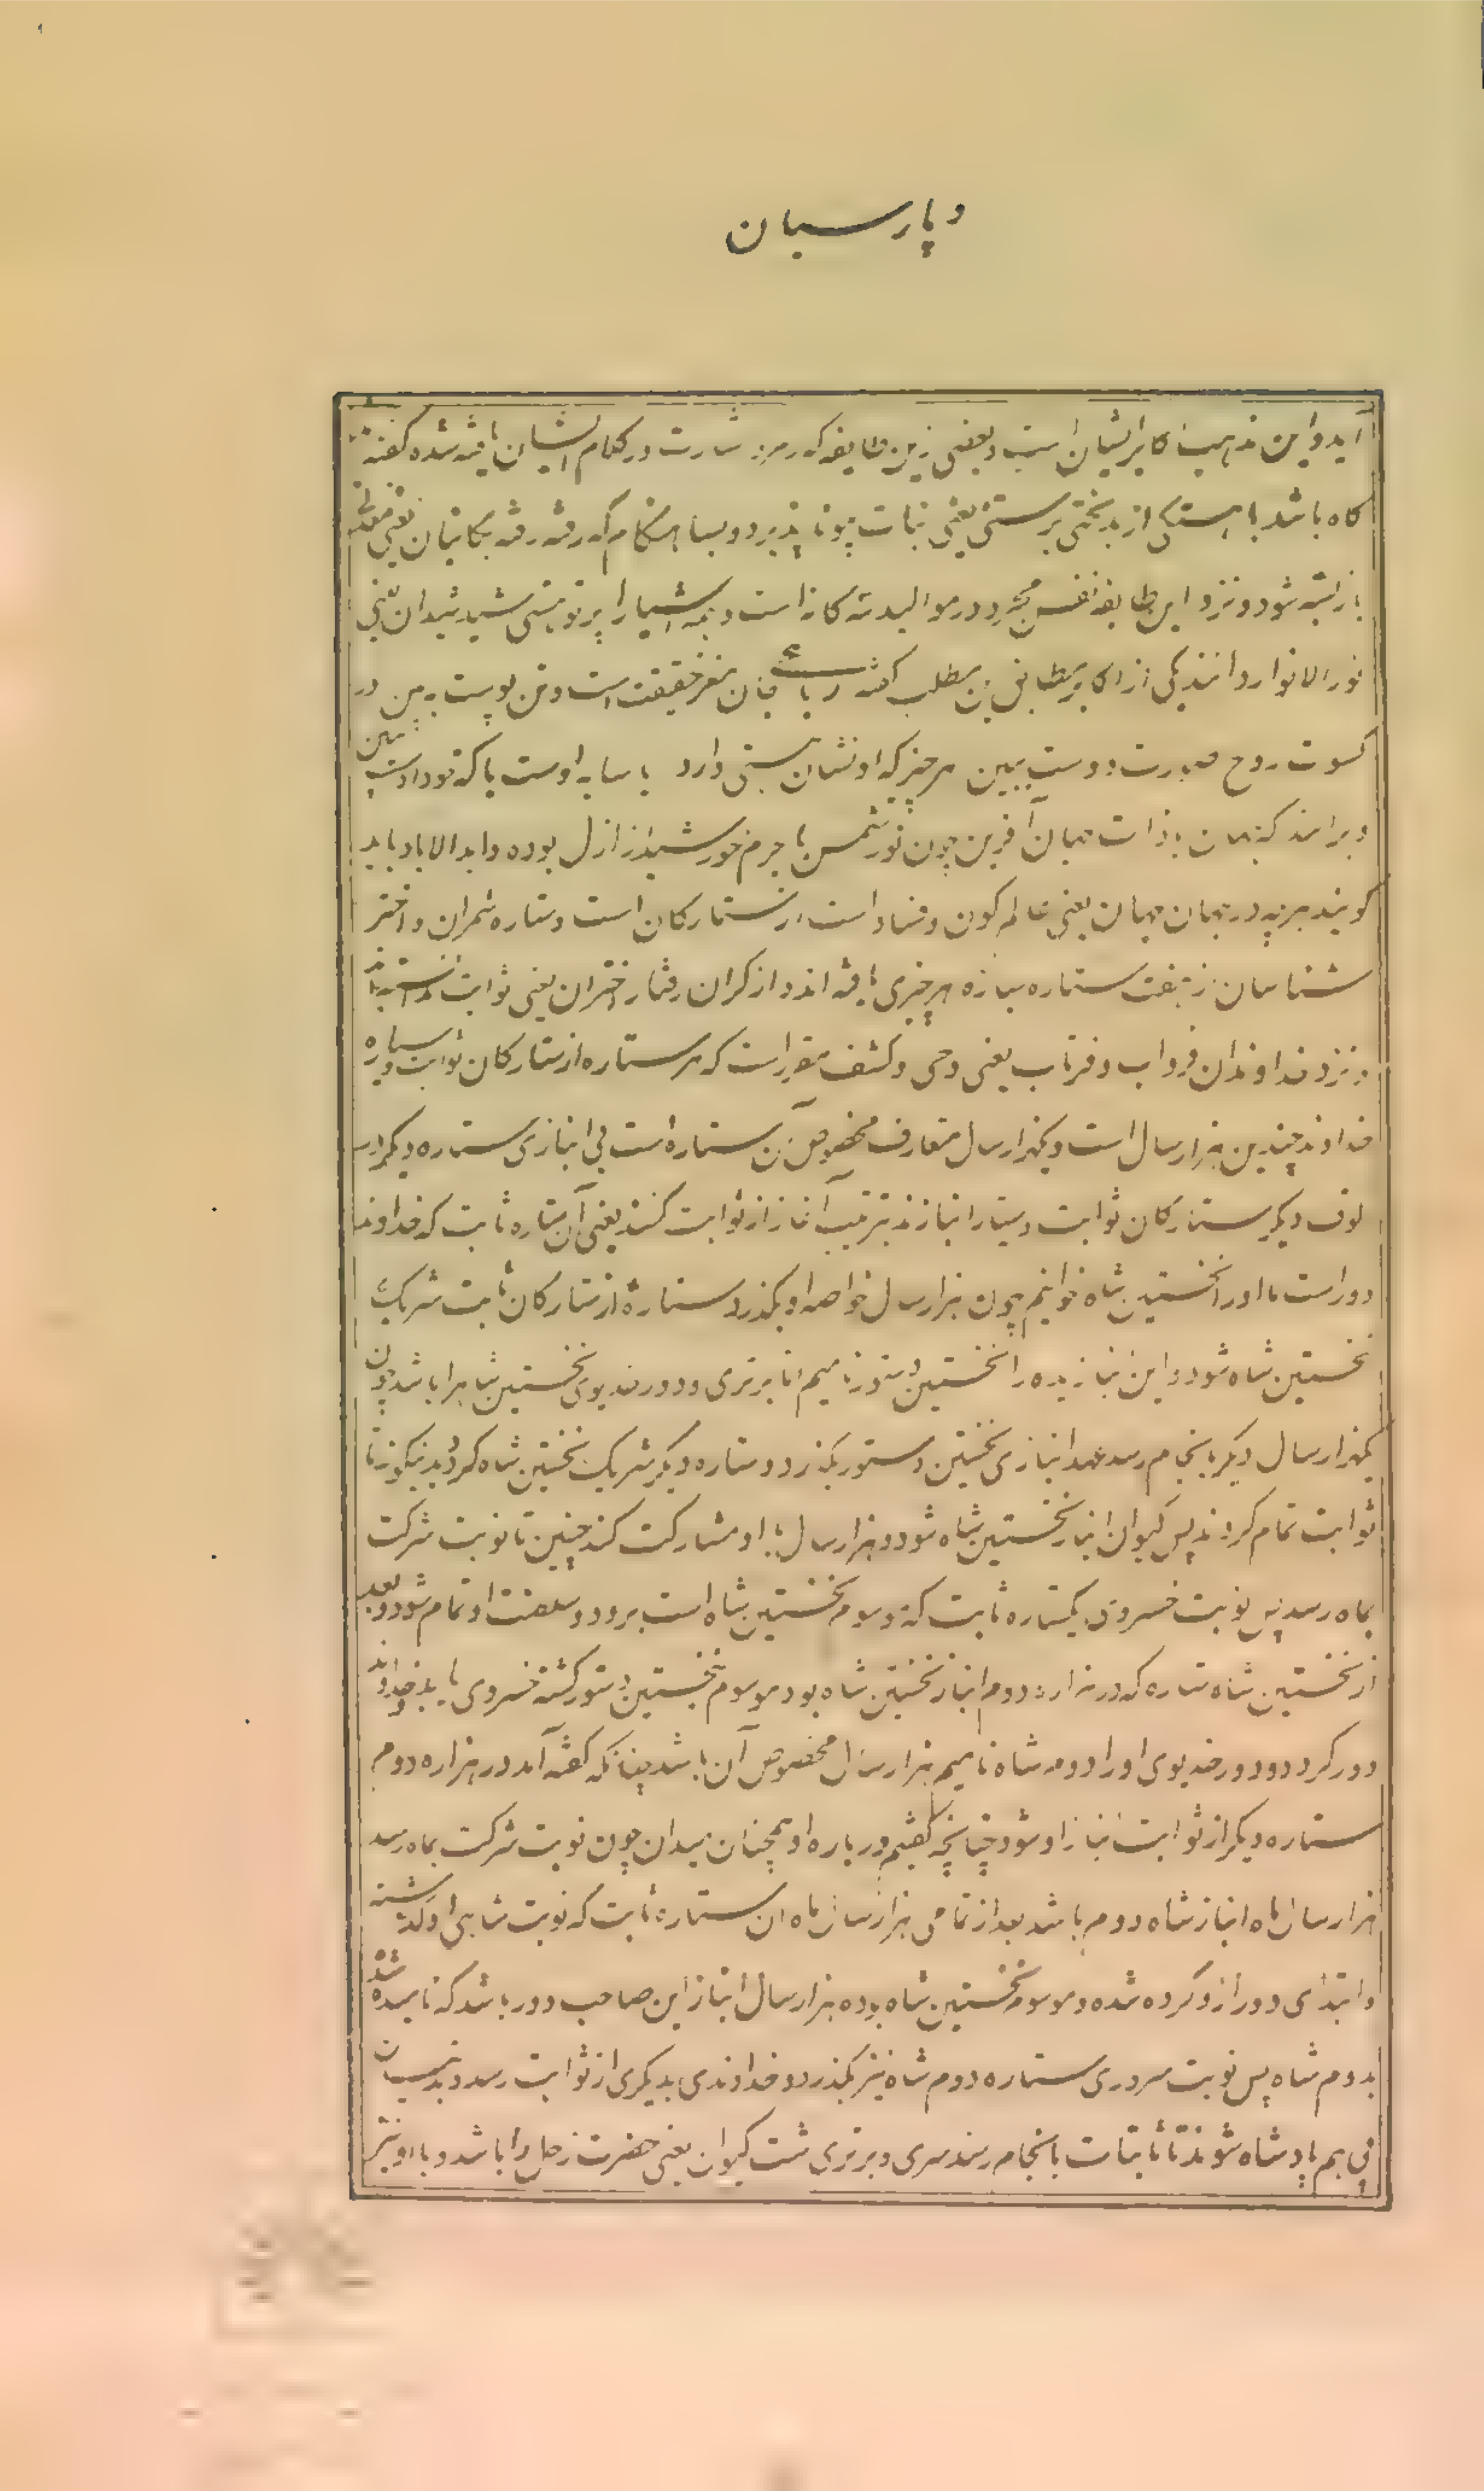 و پارسیان
آید و این مذهب اکابر ایشان است و بعضی ازین طایفه که رمز و شارت در کلام ایشان یافته شده گفته
کاه باشد باهستکی از بدبختی پرستنی یعنی نبات پیوند پذیرد و بسا هنکام که رفته رفته بکانیان یعنی معدنی
باز بسته شود و نزد این طایفه نفس مجرد در موالید سه کانه است و همه اشیا را پرتو هستی شید شیدان یعنی
نورالانوار دانند یکی از اکابر مطابق این مطلب گفته رباعی جان مغز حقیقت است و تن پوست ببین در
کسوت روح صورت دوست ببین هر چیز که او نشان هستی دارد یا سایه اوست یا که خود اوست ببین
و برانند که جهان با ذات جهان آفرین چون نور شمس با جرم خورشید از ازل بوده و ابدالاباد باید
کویند هر چه در جهان جهان یعنی عالم کون و فساد است از ستارکان است و ستاره شمران و اختر
شناسان از هفت ستاره سیاره هر چیزی یافته اند و از کران رفتار اختران یعنی ثوابت ندانسته اند
و نزد خداوندان فرداب و فرتاب یعنی وحی و کشف مقرر است که هر ستاره از ستارکان ثوابت و سیاره
خداوند چندین هزار سال است و یکهزار سال متعارف مخصوص آن ستاره است بی انبازی ستاره دیکر و در
الوف دیکر ستارکان ثوابت و سیار انبازند بترتیب آغاز از ثوابت کنند یعنی آن ستاره ثابت که خداوند
دور است ما او را نخستین شاه خوانیم چون هزار سال خواصه او بکذرد ستارهٔ از ستارکان ثابت شریک
نخستین شاه شود و این انبازیده را نخستین دستور نامیم اما برتری و دور خدیوی نخستین شاه را باشد چون
یکهزار سال دیکر بانجام رسد عهد انبازی نخستین دستور بکذرد و ستاره دیکر شریک نخستین شاه کردد بدینکونه تا
ثوابت تمام کردند پس کیوان انباز نخستین شاه شود و هزار سال با او مشارکت کند چنین تا نوبت شرکت
بماه رسد پس نوبت خسروی یکستاره ثابت که موسوم نخستین شاه است برود و سلطنت او تمام شود و بعد
از نخستین شاه ستاره که در هزاره دوم انباز نخستین شاه بود موسوم نخستین دستور کشته خسروی یابد خداوند
دور کردد و در دور خدیوی او را دوم شاه نامیم هزار سال مخصوص آن باشد چنانکه گفته آمد در هزاره دوم
ستاره دیکر از ثوابت انباز او شود چنانچه کفتیم درباره او همچنان میدان چون نوبت شرکت بماه رسد
هزار سال ماه انباز شاه دوم باشد بعد از تمامی هزار سال ماه ان ستاره ثابت که نوبت شاهی او گذشته
و ابتدای دور ازو کرده شده و موسوم نخستین شاه بوده هزار سال انباز این صاحب دور باشد که نامیده شد
بدوم شاه پس نوبت سروری ستاره دوم شاه نیز بکذرد و خداوندی بدیکری از ثوابت رسد و بدینسان
پی هم پادشاه شوند تا ثابتات بانجام رسند سری و برتری شت کیوان یعنی حضرت زحل را باشد و با او نیز